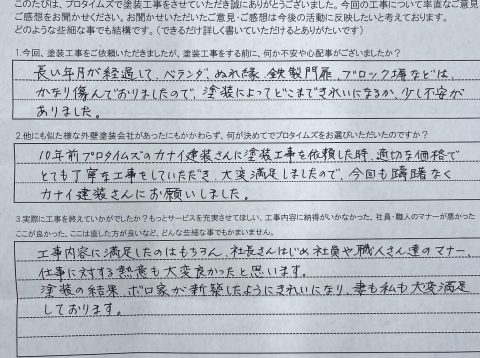 このたびは、プロタイムズで塗装工事をさせていただき誠にありがとうございました。今回の工事について率直なご意見
ご感想をお聞かせください。お聞かせいただいたご意見・ご感想は今後の活動に反映したいと考えております。
どのような些細な事でも結構です。（できるだけ詳しく書いていただけるとありがたいです）
1.今回、塗装工事をご依頼いただきましたが、塗装工事をする前に、何か不安や心配事がございましたか？
長い年月が経過して、ベランダ、ぬれ縁、鉄製門扉、ブロック塀などは、
かなり傷んでおりましたので、塗装によってどこまできれいになるか、少し不安が
ありました。
2.他にも似た様な外壁塗装会社があったにもかかわらず、何が決めてでプロタイムズをお選びいただいたのですか？
10年前プロタイムズのカナイ建装さんに塗装工事を依頼した時、適切な価格で
とても丁寧な工事をしていただき、大変満足しましたので、今回も躊躇なく
カナイ建装さんにお願いしました。
3.実際に工事を終えていかがでしたか？もっとサービスを充実させてほしい、工事内容に納得がいかなかった、社員・職人のマナーが悪かった
ここが良かった、ここは直した方が良いなど、どんな些細な事でもかまいません。
工事内容に満足したのはもちろん、社長さんはじめ社員や職人さん達のマナー、
仕事に対する熱意も大変良かったと思います。
塗装の結果、ボロ家が新築したようにきれいになり、妻も私も大変満足
しております。